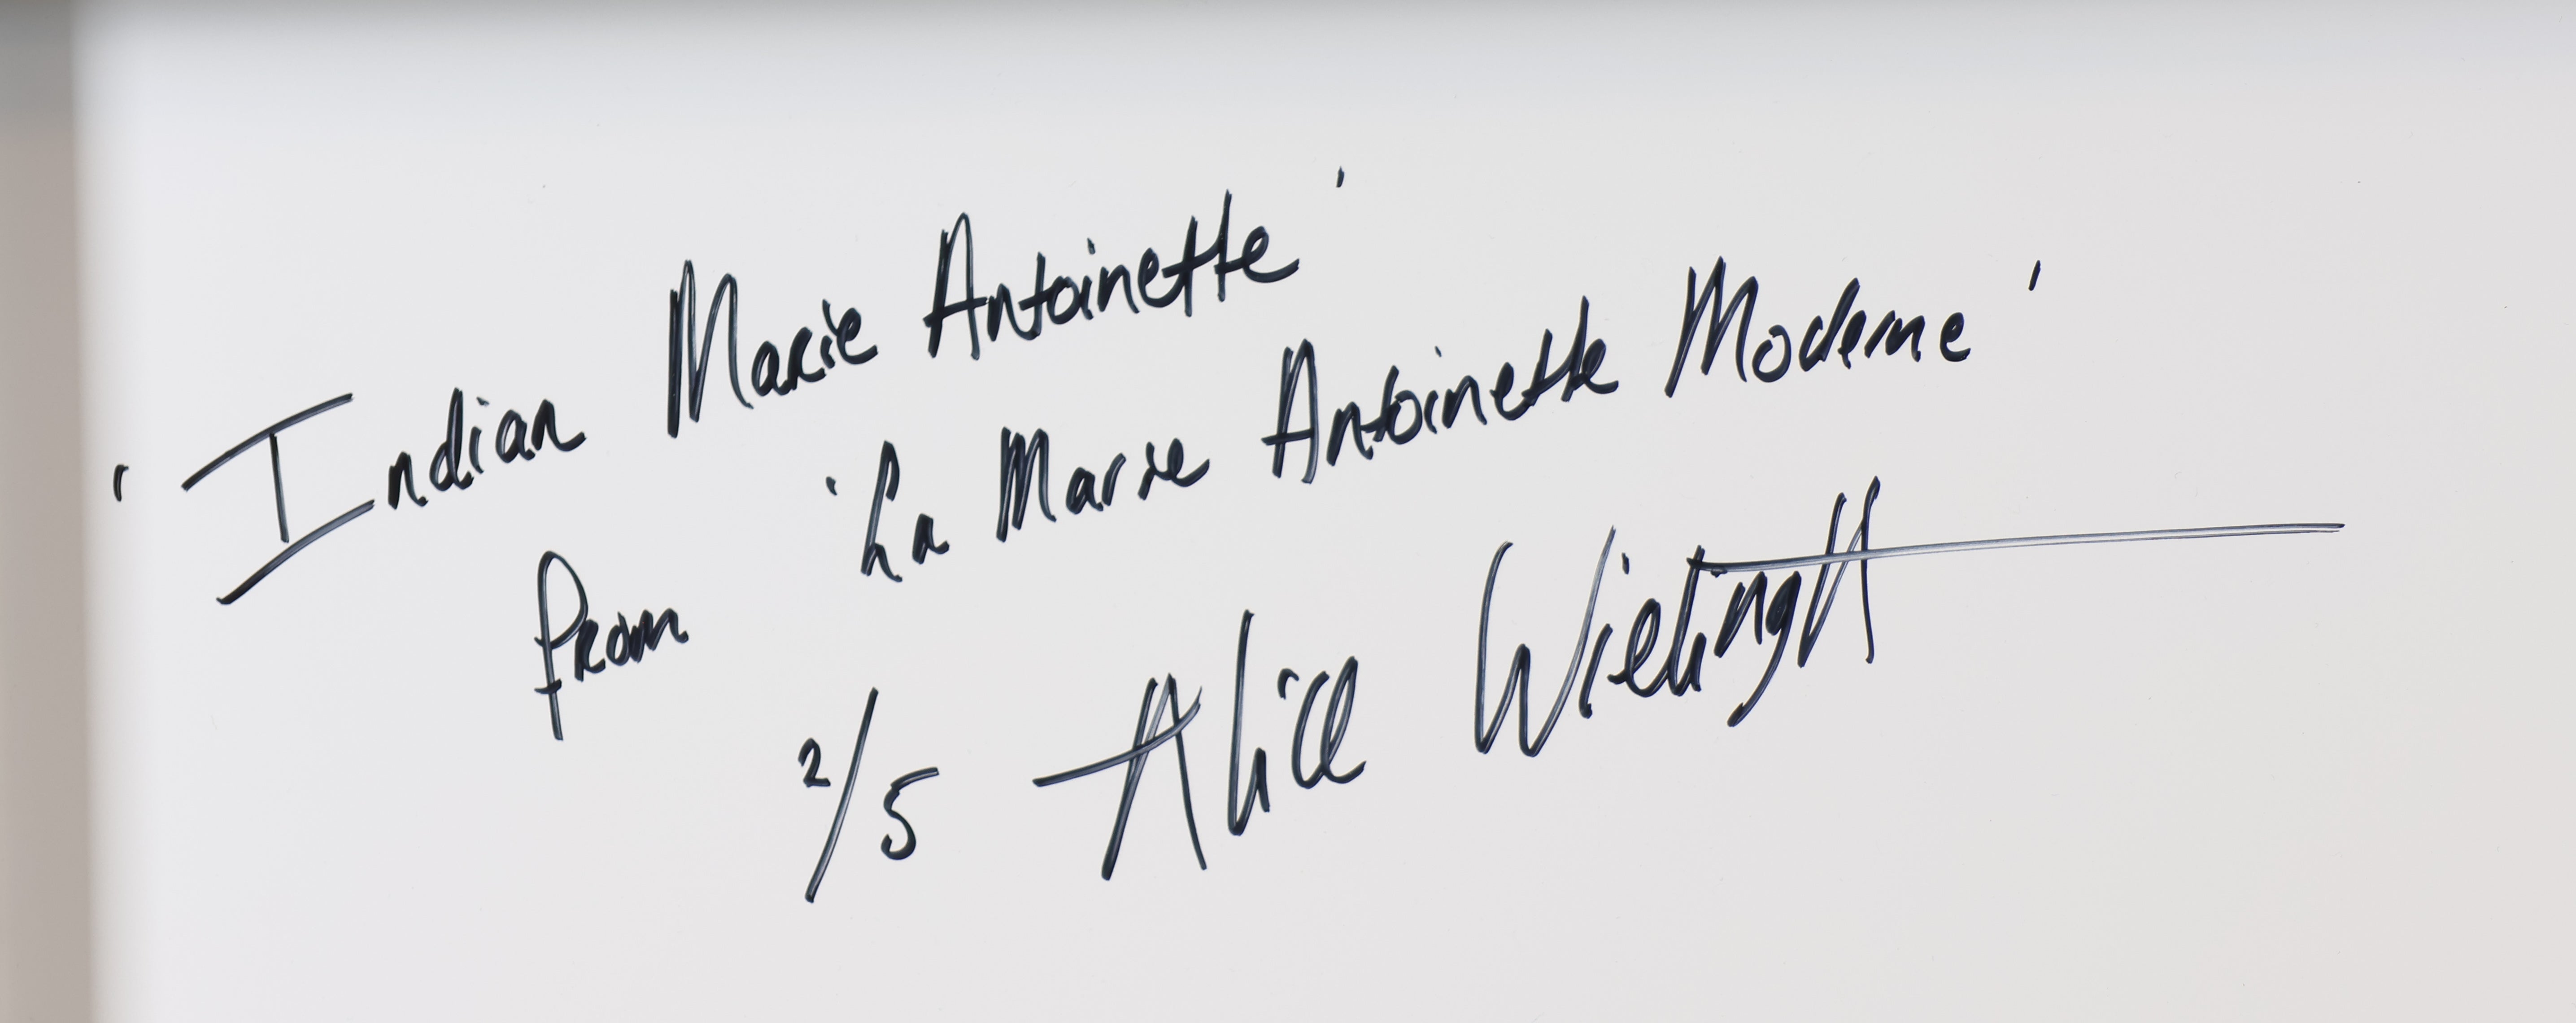 'Indian Marie Antoinette'
from 'La Marie Antoinette Moderne'
2/5 Alice Wielinga